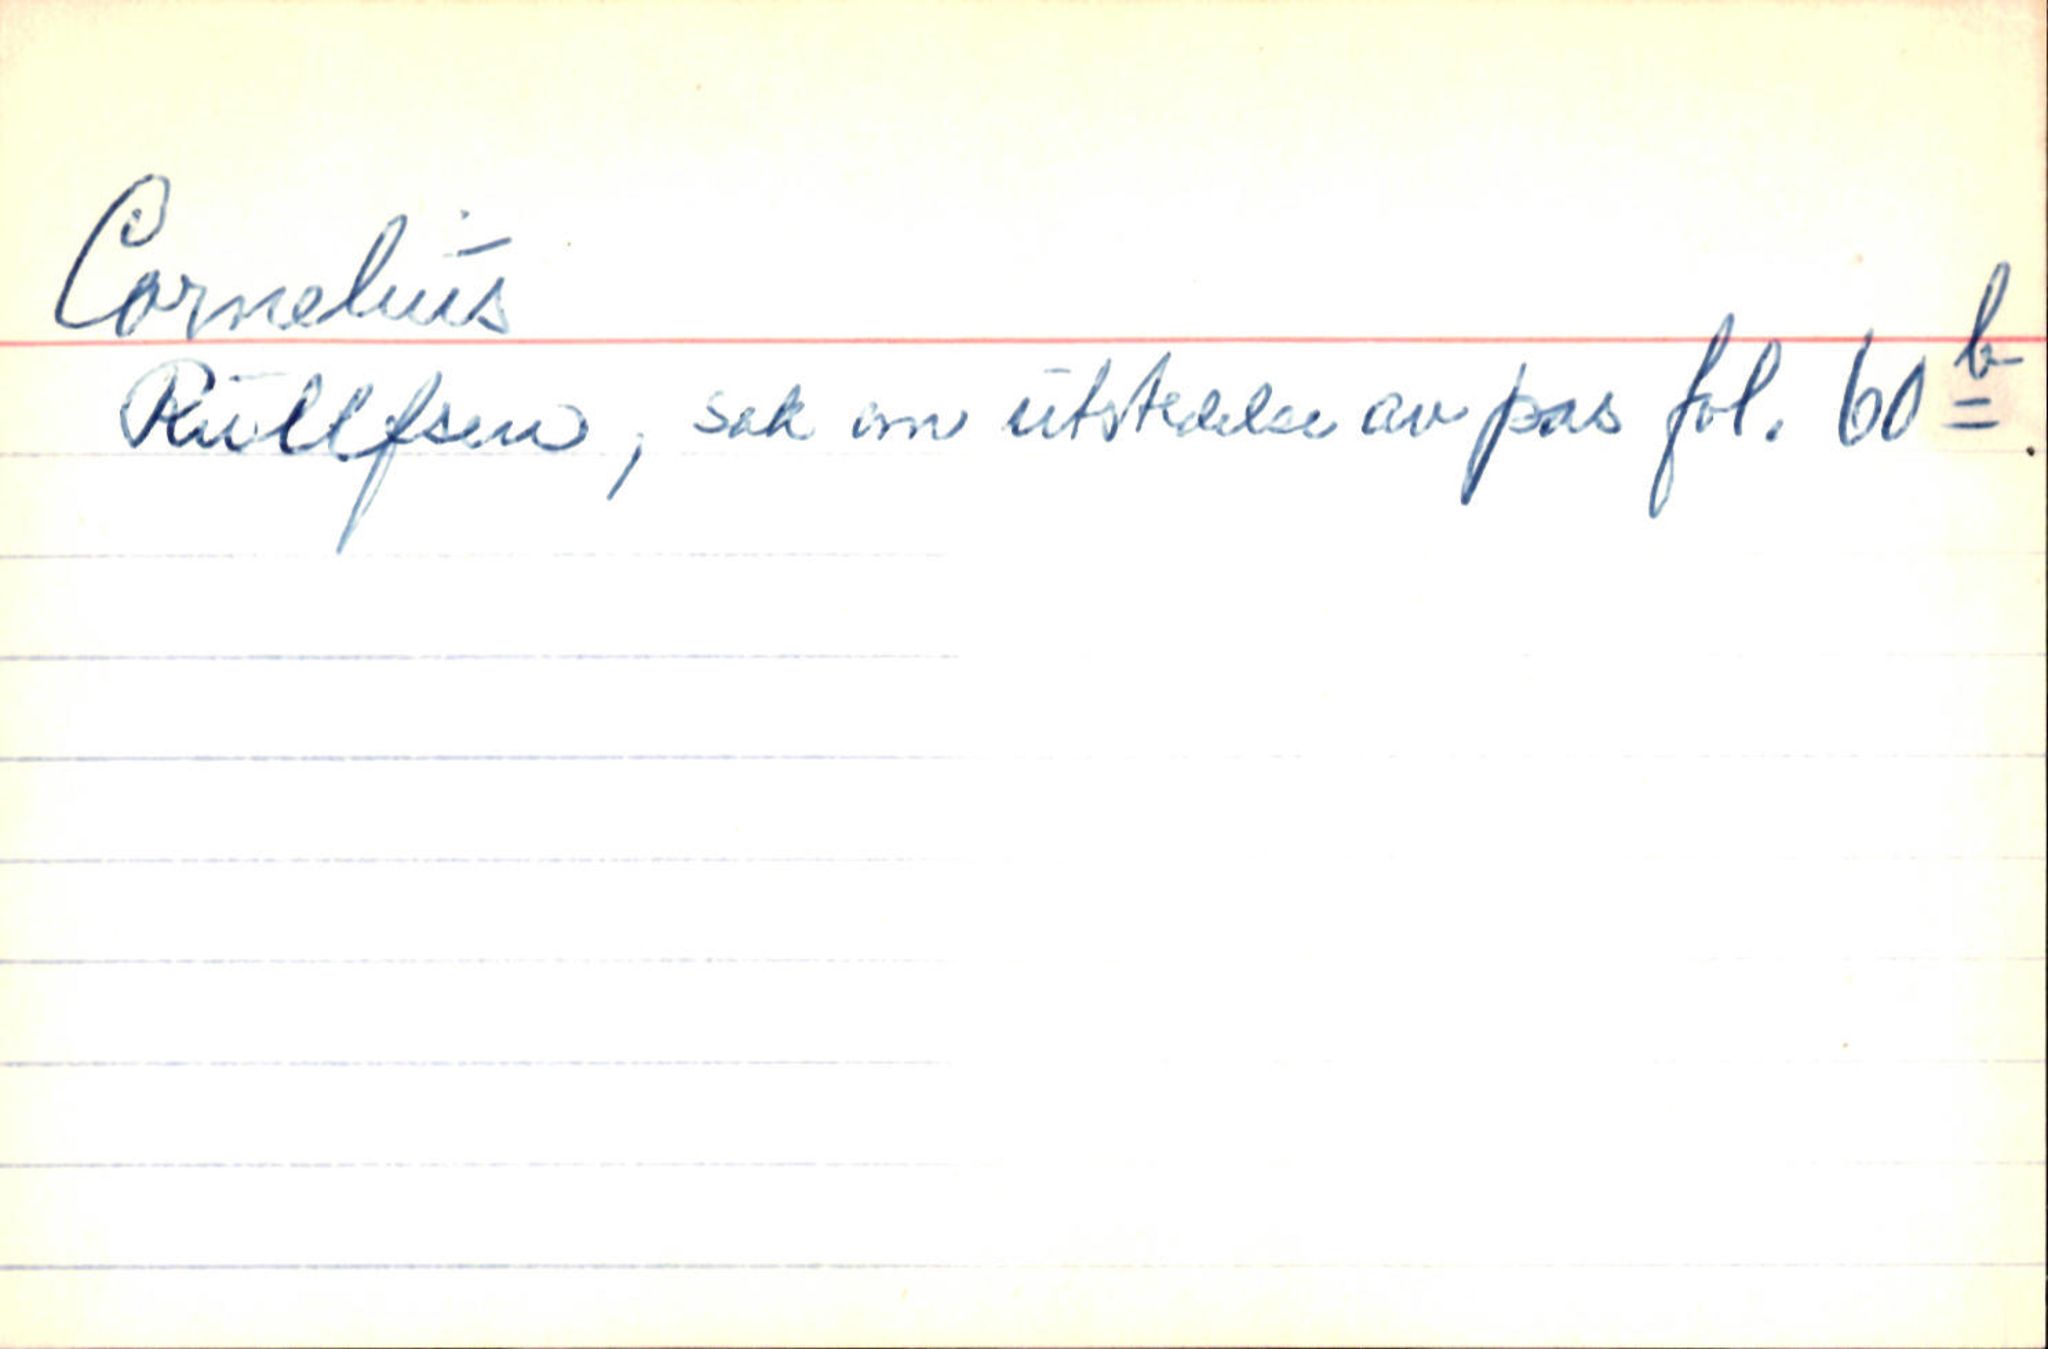 Cornelius
Rulllfsen, sak om utstedelse av pas fol. 60b.